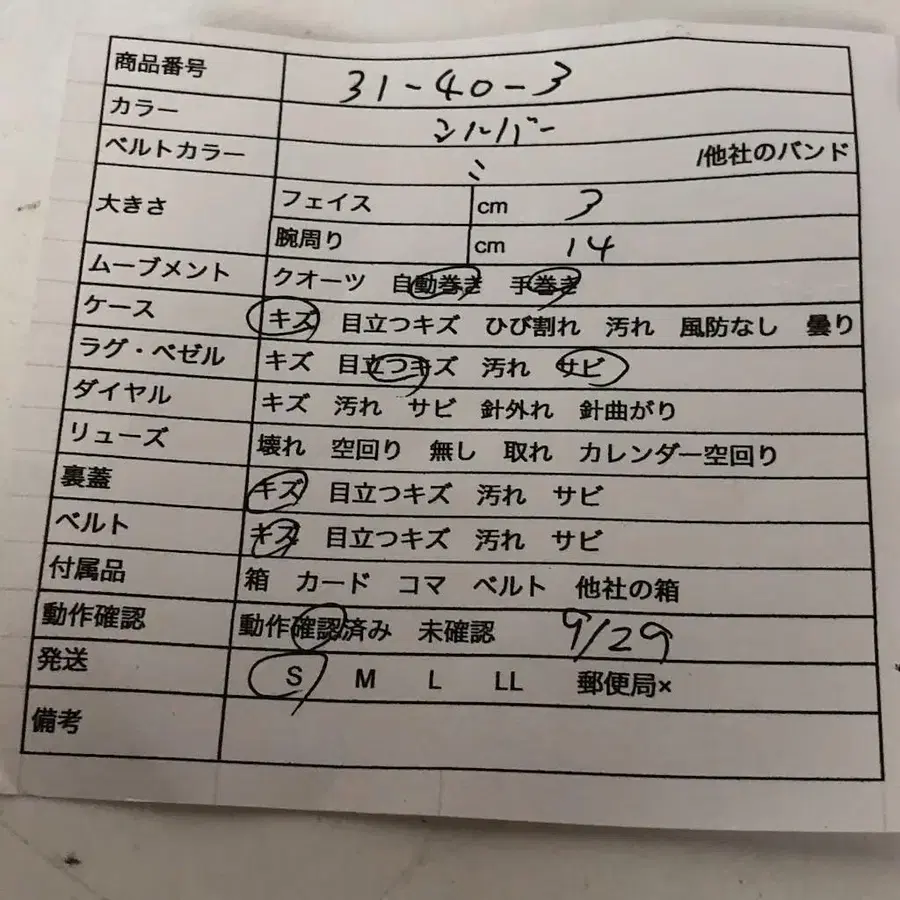 商品番号 31-40-3
カラー シルバー
ベルトカラー 〃 /他社のバンド
大きさ フェイス cm 3
腕周り cm 14
ムーブメント クオーツ 自動巻き 手巻き
ケース キズ 目立つキズ ひび割れ 汚れ 風防なし 曇り
ラグ・ベゼル キズ 目立つキズ 汚れ サビ
ダイヤル キズ 汚れ サビ 針外れ 針曲がり
リューズ 壊れ 空回り 無し 取れ カレンダー空回り
裏蓋 キズ 目立つキズ 汚れ サビ
ベルト キズ 目立つキズ 汚れ サビ
付属品 箱 カード コマ ベルト 他社の箱
動作確認 動作確認済み 未確認 9/29
発送 S M L LL 郵便局×
備考